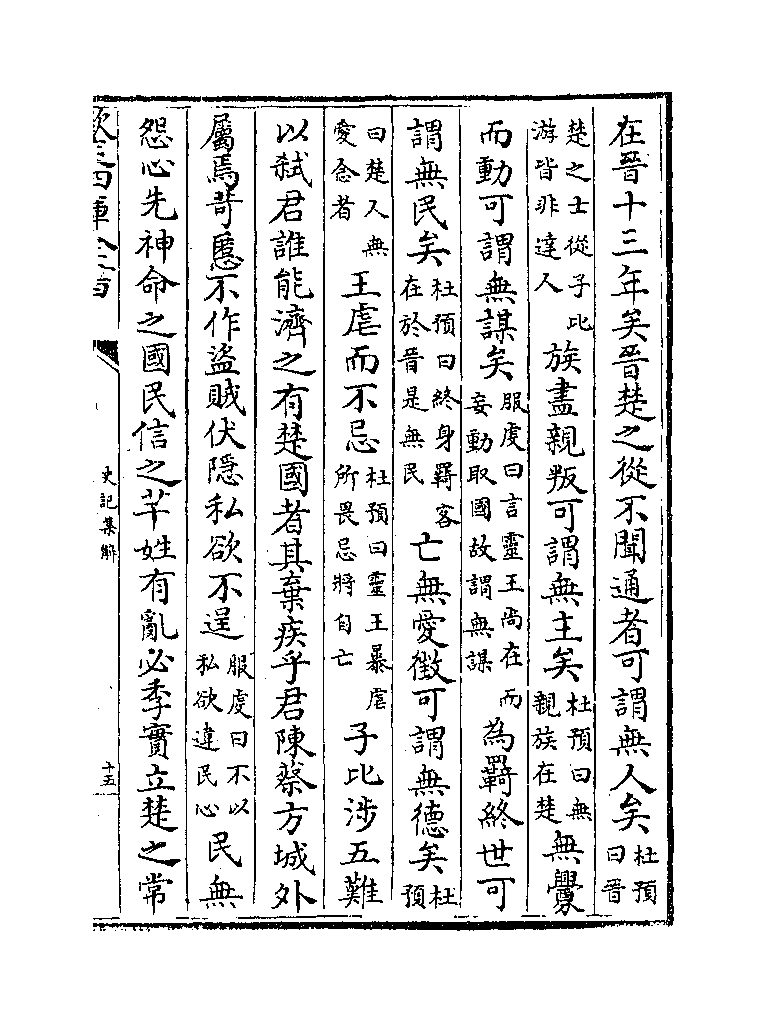 在晉十三年矣晉楚之從不聞通者可謂無人矣杜預曰晉
楚之士從子比游皆非達人族盡親叛可謂無主矣杜預曰無親族在楚無釁
而動可謂無謀矣服虔曰言靈王尚在而妄動取國故謂無謀為羇終世可
謂無民矣杜預曰終身羇客在於晉是無民亡無愛徵可謂無德矣杜預
曰楚人無愛念者王虐而不忌杜預曰靈王暴虐所畏忌將自亡子比涉五難
以弒君誰能濟之有楚國者其棄疾乎君陳蔡方城外
屬焉苛慝不作盜賊伏隱私欲不逞服虔曰不以私欲違民心民無
怨心先神命之國民信之芊姓有亂必季實立楚之常
欽定四庫全書
史記集解
十五